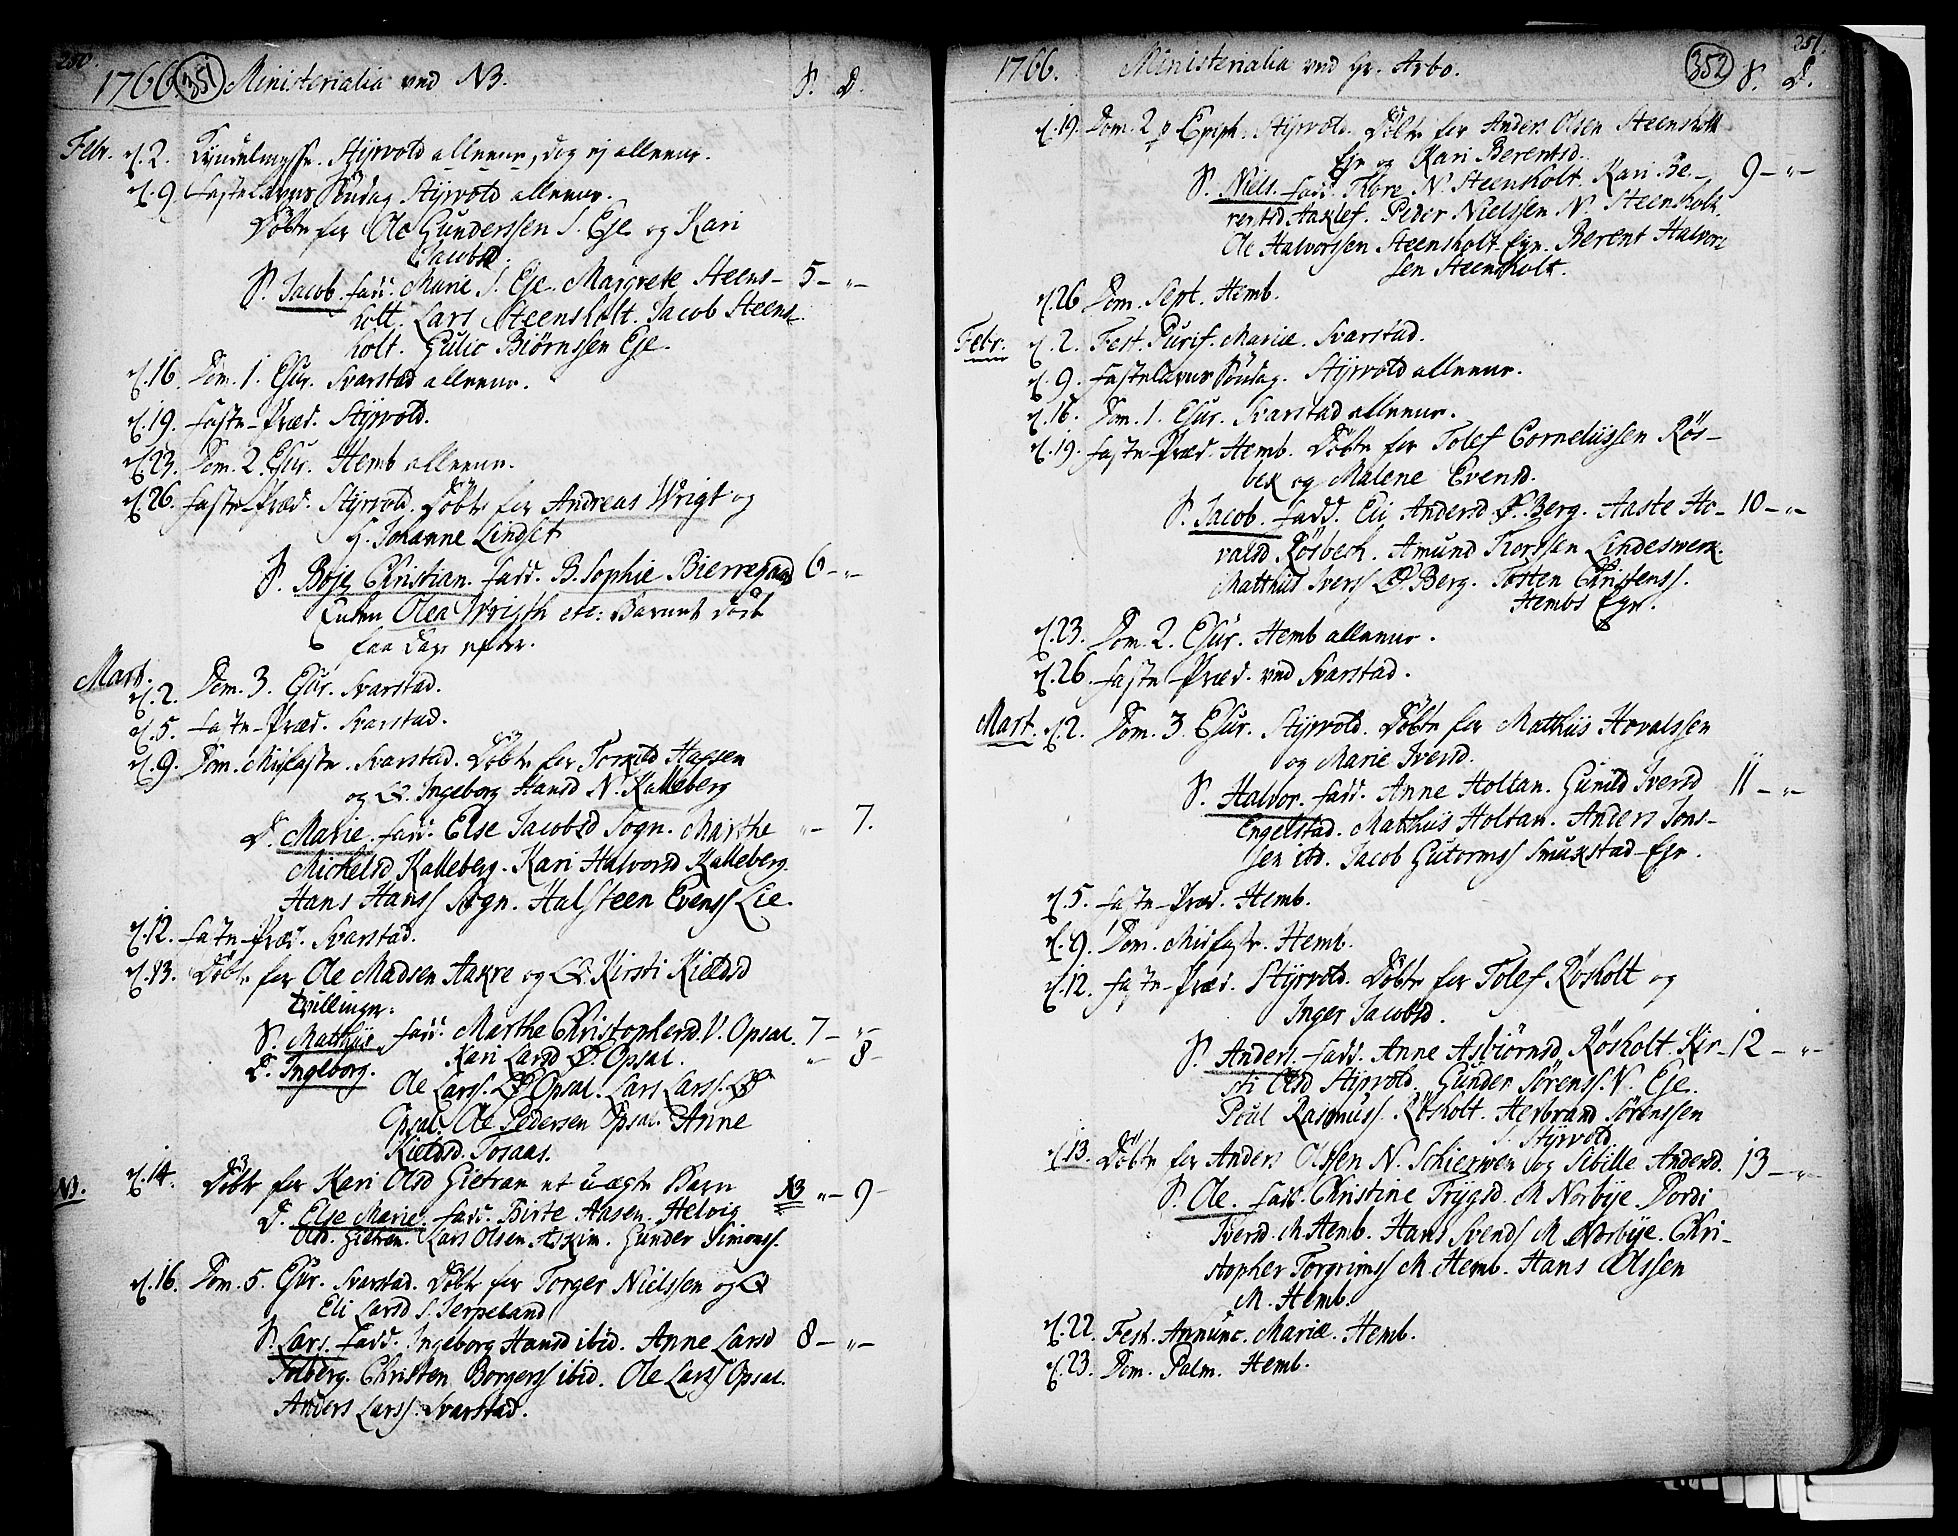 250.
1766. 351 Ministerialia ved NB. S. D.
Febr. d. 2. Kyndelmysse. Styrvold allenne, dog ej allenne.
d. 9 Fastelavns Søndag Styrvold allenne.
Døbt for Ole Gunderssen S. Eje og Kari
Jacobsd.
S. Jacob. Fadd. Marie S. Eje. Margrete Steens- 5 - „ -
holt. Lars Steensholt. Jacob Steens-
holt. Gulic Biørnssen Eje.
d. 16. Dom. 1. Esur. Svarstad allenne.
d. 19. Faste-Præd. Styrvold.
d. 23. Dom. 2. Esur. Hemb allenne.
d. 26. Faste-Præd. Styrvold. Døbt for Andreas Wrigt og
H. Johanne Lindset
S. Boje Christian. Fadd. B. Sophie Bierregaard 6 - „ -
Enken Olea Wrigth etc: Barnet døde
faa Dage efter.
Mart. d. 2. Dom. 3. Esur. Svarstad.
d. 5. Faste-Præd. Svarstad.
d. 9. Dom. Midfaste. Svarstad. Døbt for Torkild Hanssen
og Q. Ingeborg Hansd N. Kalleberg
D. Marie. Fadd. Else Jacobsd Sogn. Marthe „ - 7.
Michelsd Kalleberg. Kari Halvorsd Kalleberg.
Hans Hanss Sogn. Halsteen Evenss Lie.
d. 12. Faste-Præd. Svarstad.
d. 13. Døbt for Ole Madsen Aakre og Q. Kirsti Kieldsd
Tvillinger:
S. Matthis Fadd. Marthe Christophersd. V. Opsal. 7 - „ -
D. Ingeborg. Kari Larsd Ø. Opsal. „ 8 -
Ole Larss. Ø Opsal. Lars Larss. Ø
Opsal. Ole Pedersen Opsal. Anne
Kieldsd. Tosaas.
NB. d. 14. Døbt for Kari Olsd Gietran et uægte Barn NB „ - 9 -
D. Else Marie. Fadd. Birte Aasen. Helvig
Olsd. Gietran. Lars Olsen Askim. Gunder Simonss.
d. 16. Dom. 5. Esur. Svarstad. Døbt for Torger Nielssen og Q
Eli Larsd S. Jerpeland
S. Lars. Fadd. Ingeborg Hansd ibid. Anne Larsd 8 - „ -
Folberg. Christen Borgerss ibid. Ole Larss Opsal.
Anders Larss. Svarstad.
251.
1766. Ministerialia ved Hr. Arbo. 352 S. D.
d. 19. Dom. 2 p Epiph. Styrvold. Døbt for Anders Olsen Steensholt
Eje og Kari Berentsd.
S. Niels. Fadd. Thore N. Steenholt. Kari Be- 9 - „ -
rentsd Aaklef. Peder Nielssen N. Steensholt.
Ole Halvorssen Steensholt-Eje. Berent Halvor-
sen Steensholt.
d. 26 Dom. Sept. Hemb.
Febr. d. 2. Fest. Purif. Mariæ. Svarstad.
d. 9. Fastelavns Søndag. Styrvold allenne.
d. 16. Dom. 1. Esur. Svarstad allenne.
d. 19. Faste-Præd. Hemb. Døbt for Tolef Corneliissen Røs-
bek og Malene Evensd.
S. Jacob. Fadd. Eli Andersd Ø. Berg. Aaste Ho- 10 - „ -
valsd Røsbech. Amund Tiorssen Lindeswerk.
Matthis Iverss Ø Berg. Tosten Christenss.
Hembs Eje.
d. 23. Dom. 2. Esur. Hemb allenne.
d. 26. Faste-Præd. ved Svarstad.
Mart. d. 2. Dom. 3 Esur. Styrvold. Døbt for Matthis Hovalssen
og Marie Iversd.
S. Halvor. Fadd. Anne Holtan. Gunild Iversd 11 - „ -
Engelstad. Matthis Holtan. Anders Jons-
sen itd. Jacob Gutormss Smukstad-Eje.
d. 5. Faste-Præd. Hemb.
d. 9. Dom. Midfaste. Hemb.
d. 12. Faste-Præd. Styrvold. Døbt for Tolef Røsholt og
Inger Jacobsd.
S. Anders. Fadd. Anne Asbiørnsd Røsholt. Kir- 12 - „ -
sti Olsd Styrvold. Gunder Sørenss. N. Eje.
Poul Rasmuss. Røsholt. Herbrand Sørenssen
S. Styrvold
d. 13. Døbt for Anders Olssen N. Schierwen og Sibille Andersd. 13 - „ -
S. Ole. Fadd. Christine Trygsd. M Norbye. Dordi
Iversd. M Hemb. Hans Svends M Norbye. Chri-
stopher Torgrimss M. Hemb. Hans Olssen
M. Hemb.
d. 22. Fest. Annunc. Mariæ. Hemb.
d. 23. Dom. Palm. Hemb.